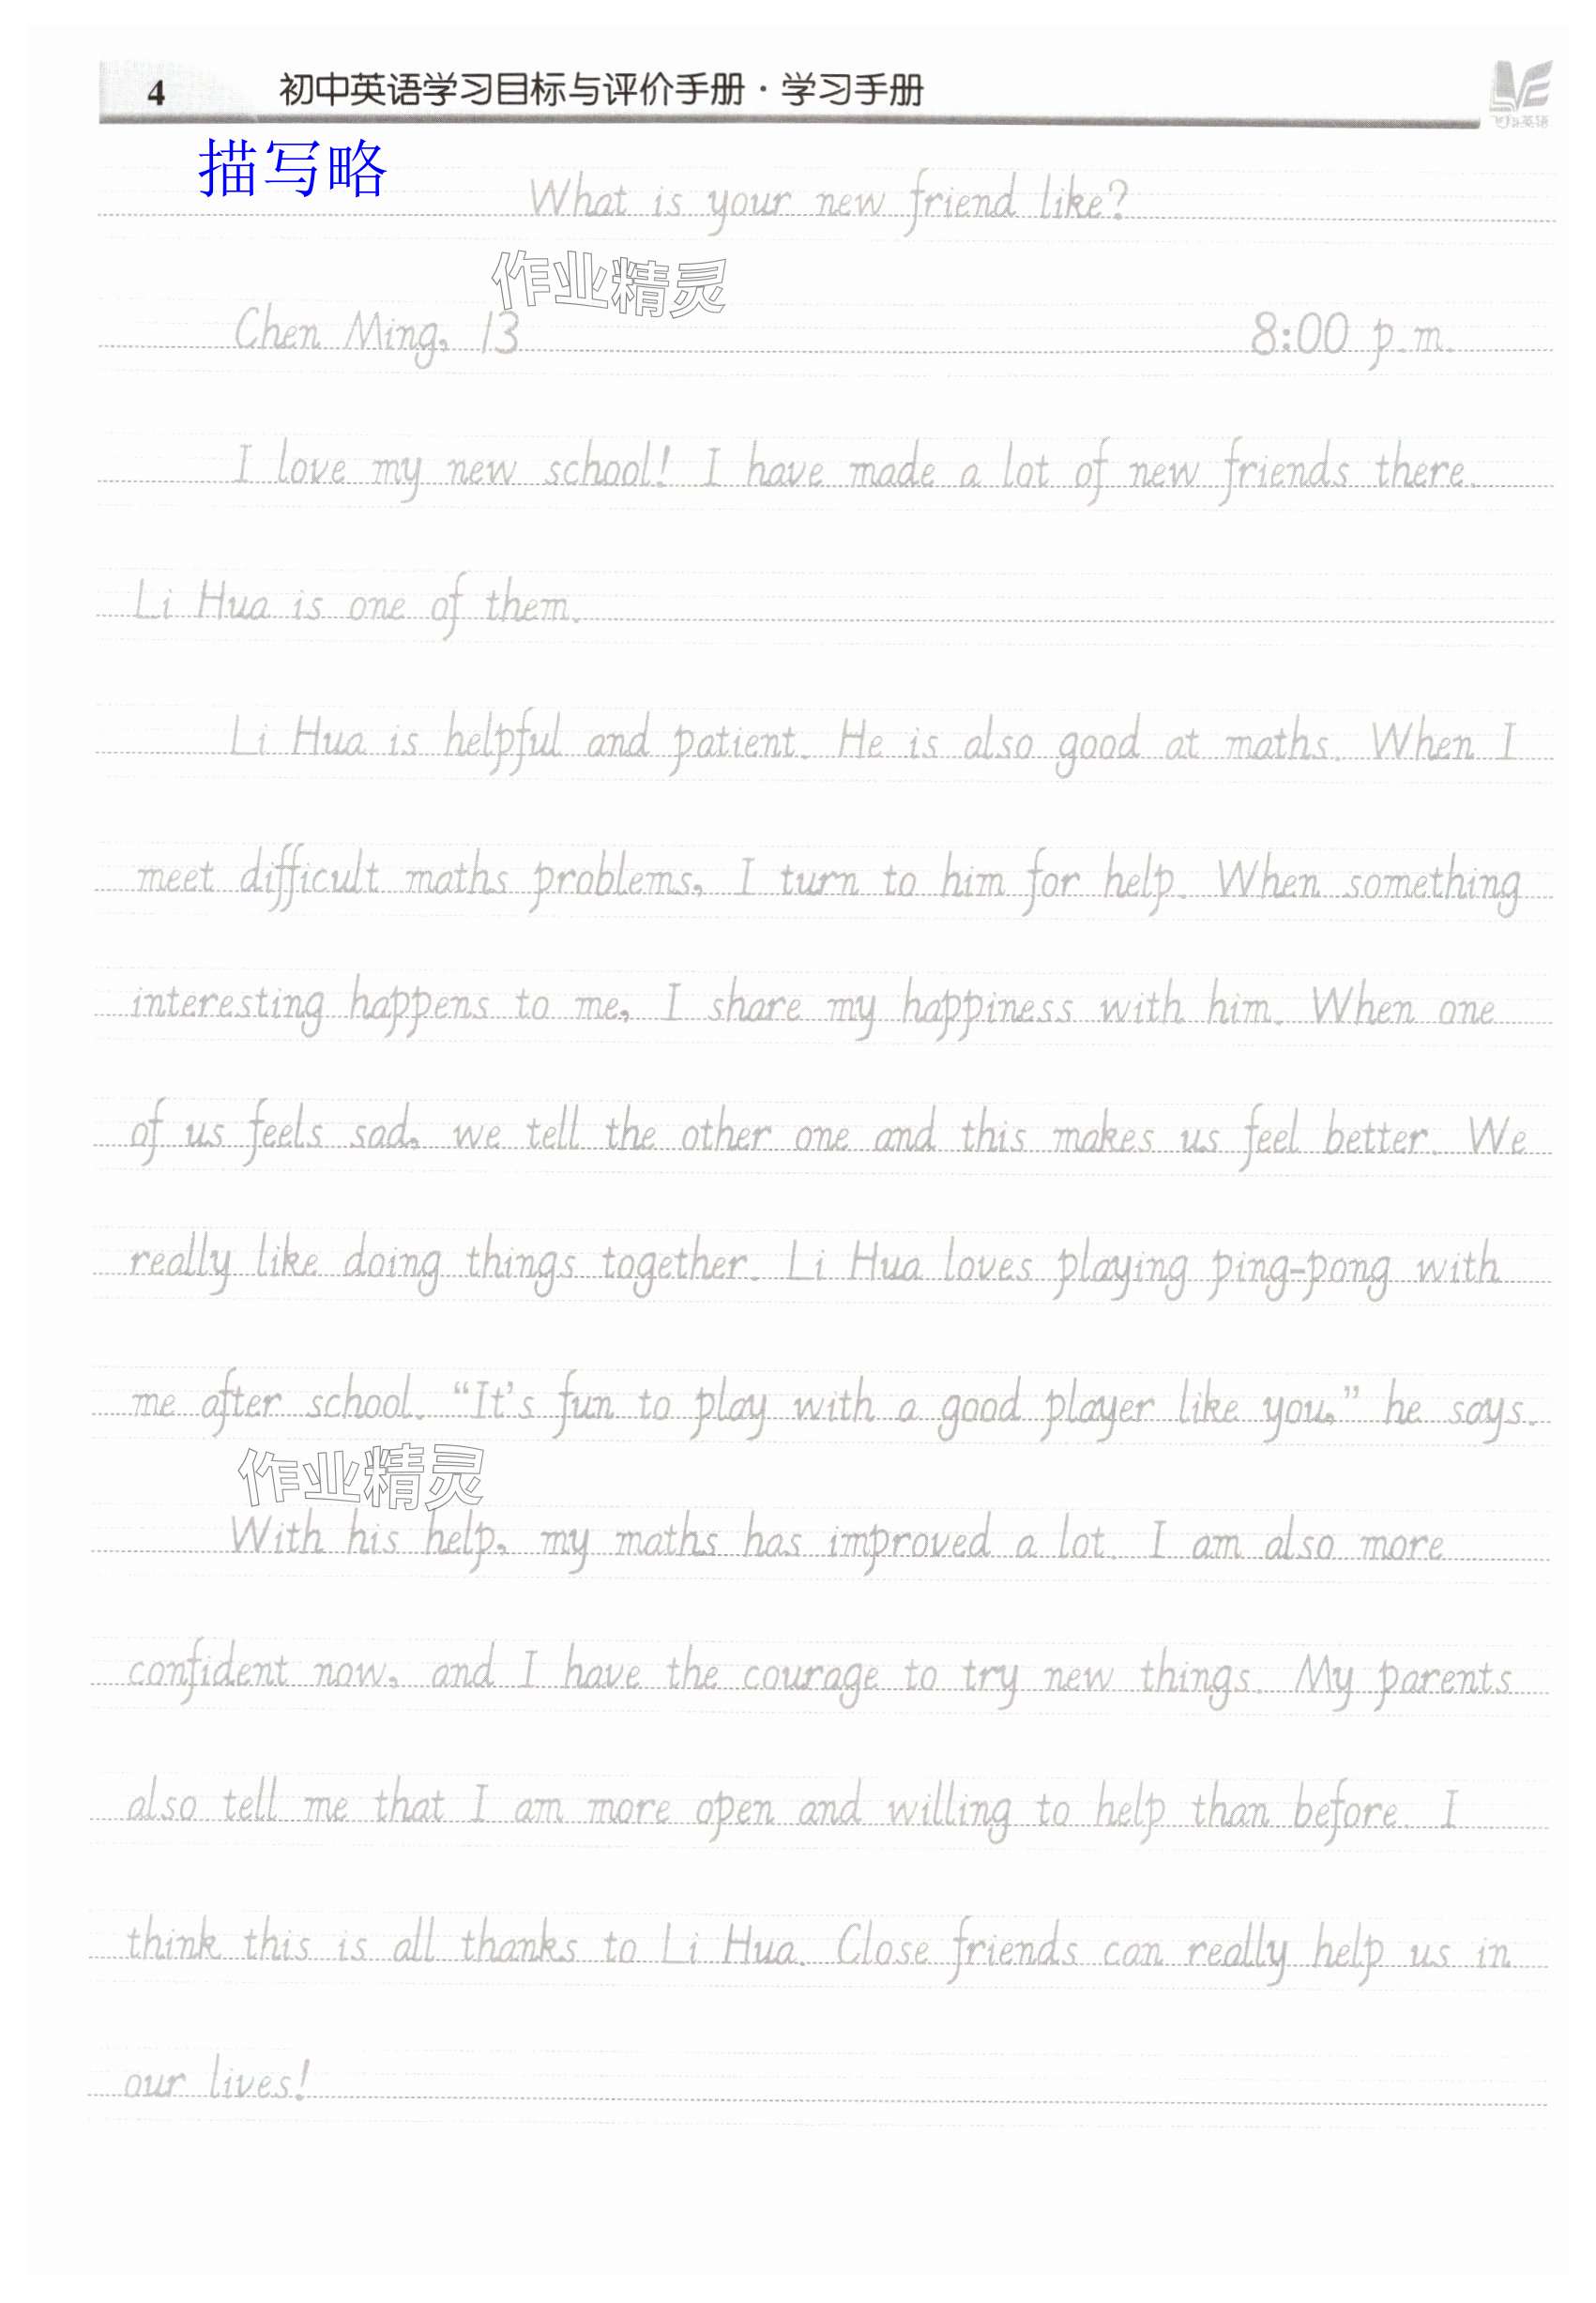 4 初中英语学习目标与评价手册·学习手册
描写略
What is your new friend like?
作业精灵
Chen Ming, 13 8:00 p.m.
I love my new school! I have made a lot of new friends there.
Li Hua is one of them.
Li Hua is helpful and patient. He is also good at maths. When I
meet difficult maths problems, I turn to him for help. When something
interesting happens to me, I share my happiness with him. When one
of us feels sad, we tell the other one and this makes us feel better. We
really like doing things together. Li Hua loves playing ping-pong with
me after school. “It’s fun to play with a good player like you,” he says.
作业精灵
With his help, my maths has improved a lot. I am also more
confident now, and I have the courage to try new things. My parents
also tell me that I am more open and willing to help than before. I
think this is all thanks to Li Hua. Close friends can really help us in
our lives!